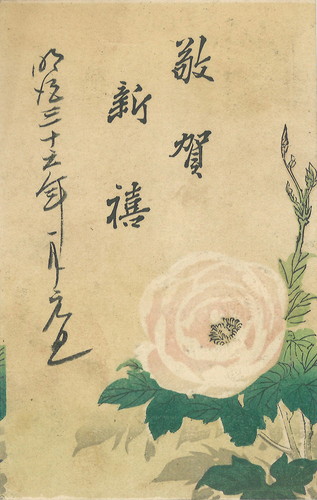 敬賀
新禧
明治三十五年一月元旦